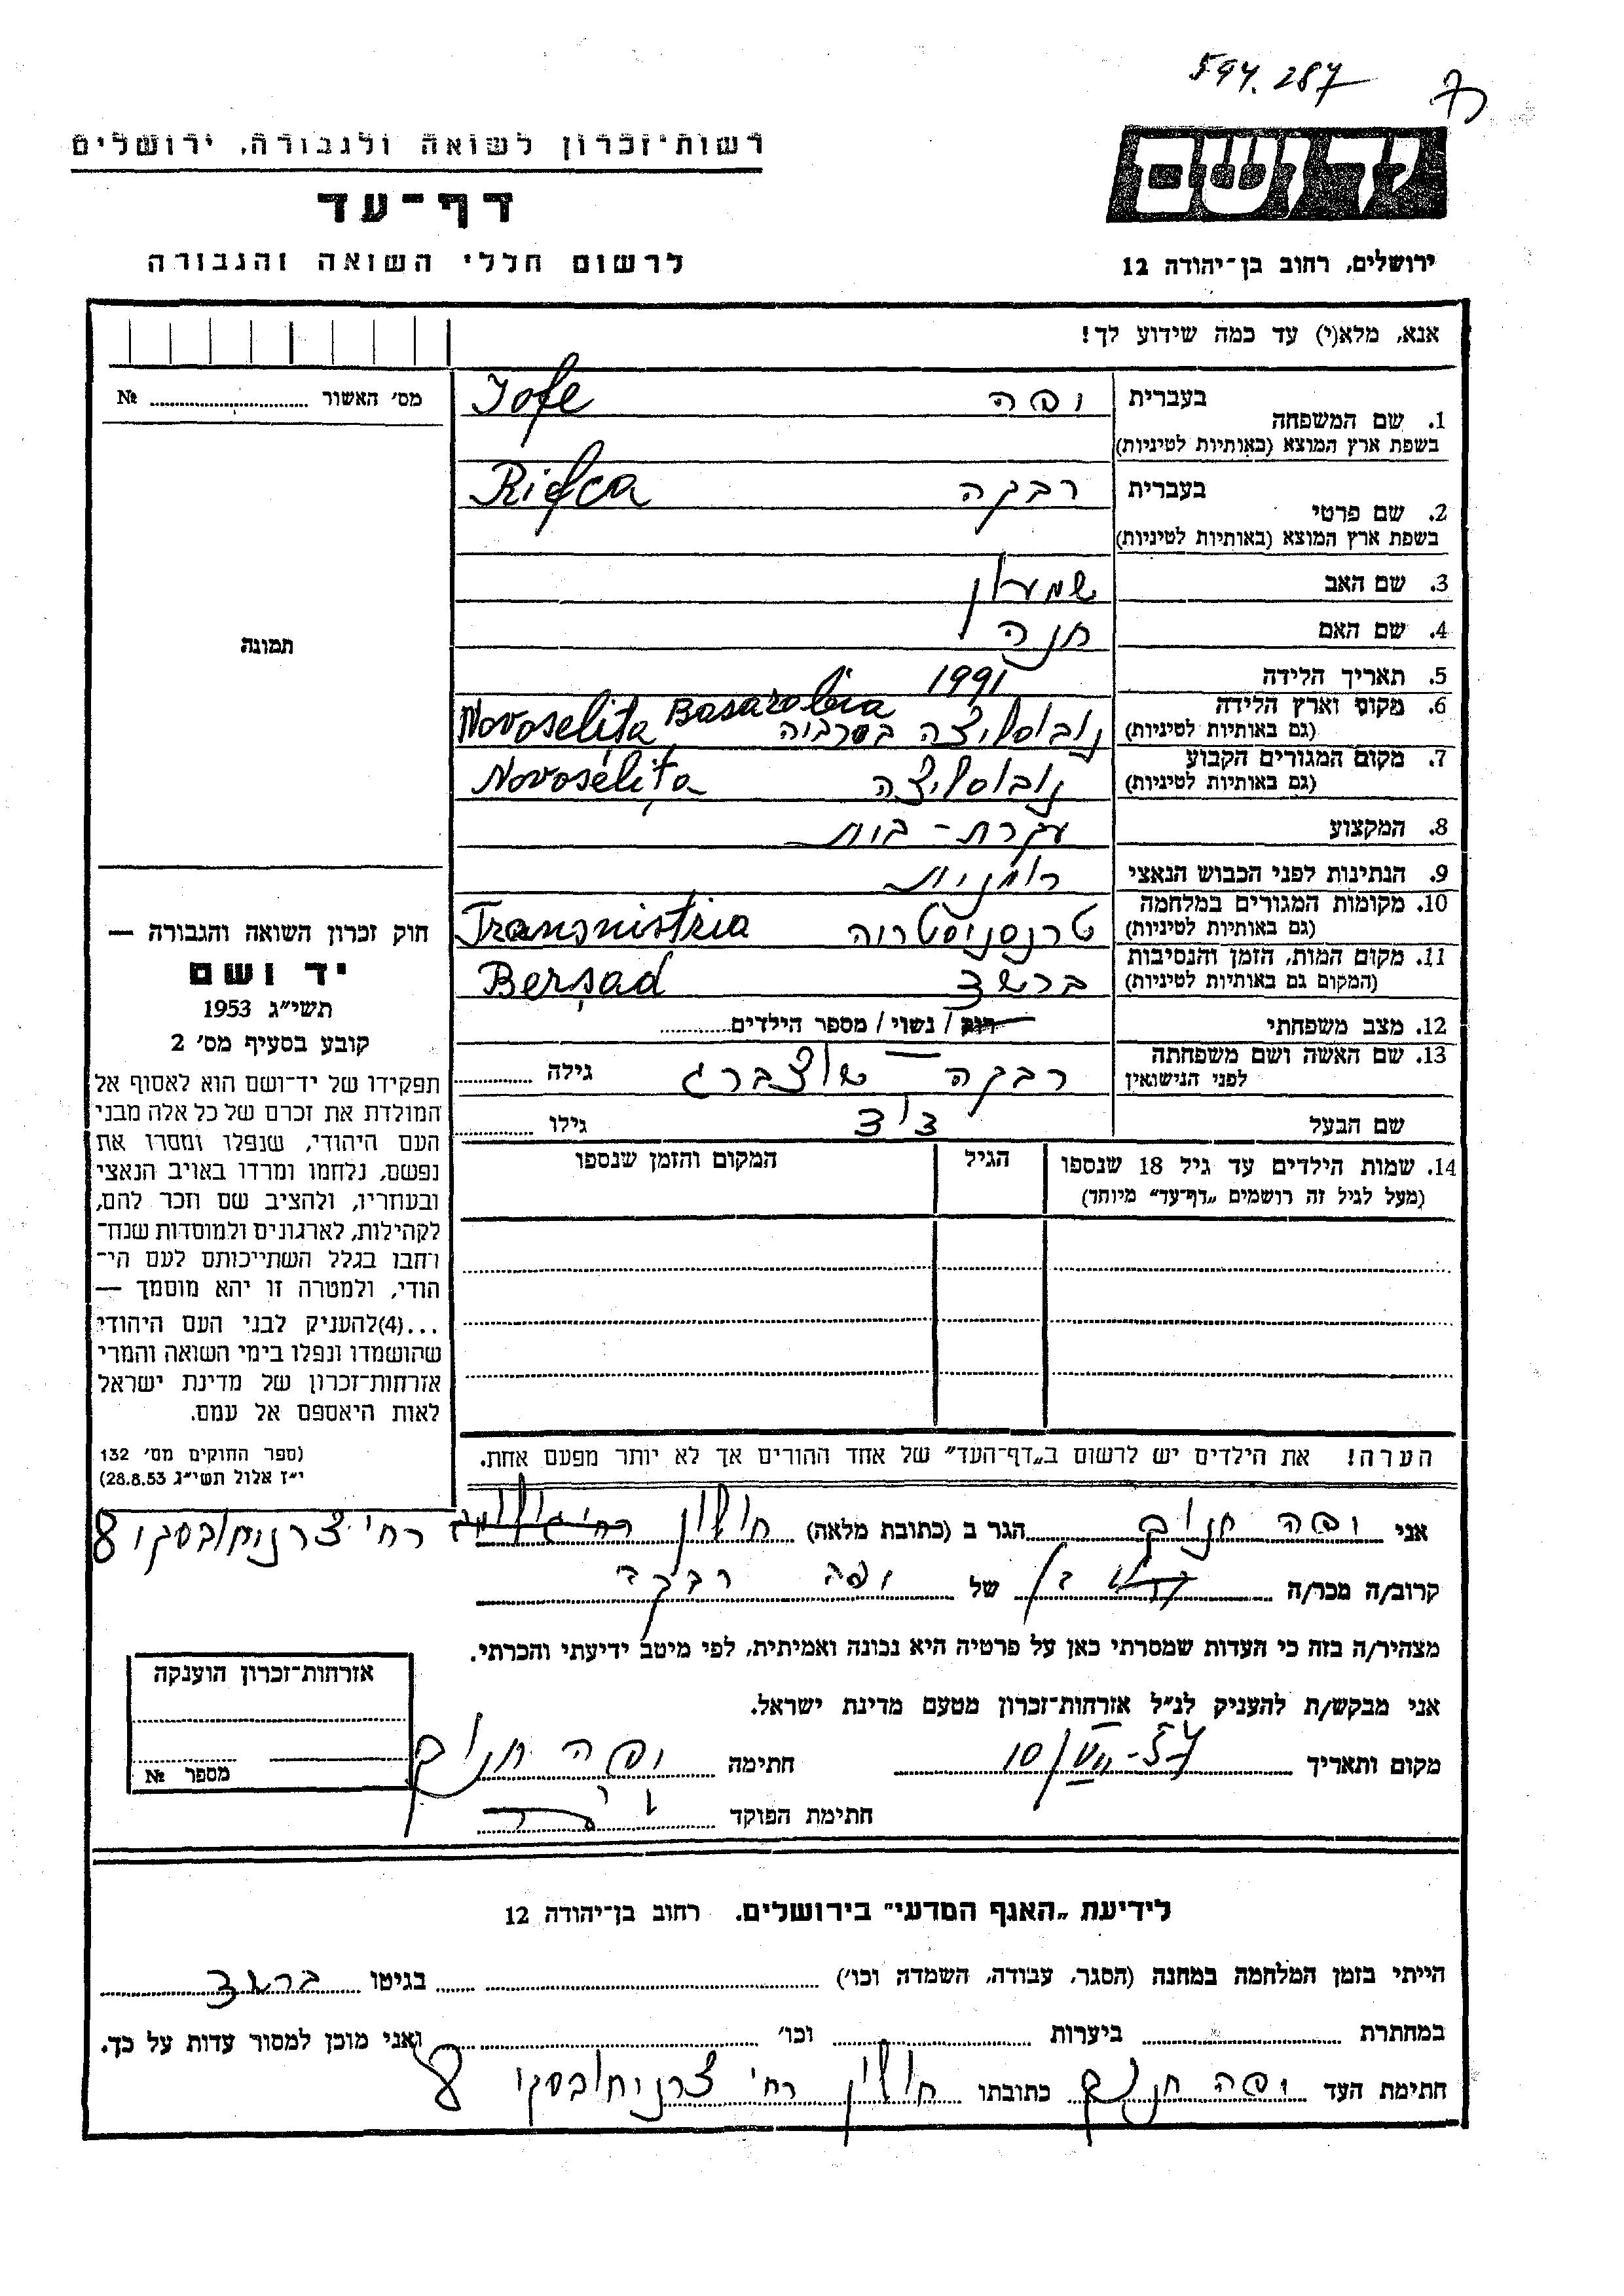 594.287
רשות־זכרון לשואה ולגבורה, ירושלים
יד ושם
דף־עד
לרשום חללי השואה והגבורה
ירושלים, רחוב בן־יהודה 12
אנא, מלא(י) עד כמה שידוע לך!
מס׳ האשור № ........
1. שם המשפחה בעברית יפה Iofe
בשפת ארץ המוצא (באותיות לטיניות)
2. שם פרטי בעברית רבקה Rifca
בשפת ארץ המוצא (באותיות לטיניות)
3. שם האב שמעון
4. שם האם חנה
תמונה
5. תאריך הלידה 1991
6. מקום וארץ הלידה נובוסליצה בסרביה Novoselita Basarabia
(גם באותיות לטיניות)
7. מקום המגורים הקבוע נובוסליצה Novoselița
(גם באותיות לטיניות)
8. המקצוע עקרת-בית
9. הנתינות לפני הכבוש הנאצי רומניות
10. מקומות המגורים במלחמה טרנסניסטריה Transnistria
(גם באותיות לטיניות)
11. מקום המות, הזמן והנסיבות ברשד Berșad
(המקום גם באותיות לטיניות)
12. מצב משפחתי רווק / נשוי / מספר הילדים........
13. שם האשה ושם משפחתה לפני הנישואין רבקה גילה ........
שם הבעל דוד גילו ........
14. שמות הילדים עד גיל 18 שנספו
(מעל לגיל זה רושמים „דף־עד" מיוחד)
הגיל
המקום והזמן שנספו
הערה! את הילדים יש לרשום ב„דף־העד" של אחד ההורים אך לא יותר מפעם אחת.
חוק זכרון השואה והגבורה —
יד ושם
תשי״ג 1953
קובע בסעיף מס׳ 2
תפקידו של יד־ושם הוא לאסוף אל
המולדת את זכרם של כל אלה מבני
העם היהודי, שנפלו ומסרו את
נפשם, נלחמו ומרדו באויב הנאצי
ובעוזריו, ולהציב שם וזכר להם,
לקהילות, לארגונים ולמוסדות שנח־
רחבו בגלל השתייכותם לעם הי־
הודי, ולמטרה זו יהא מוסמך —
...(4) להעניק לבני העם היהודי
שהושמדו ונפלו בימי השואה והמרי
אזרחות־זכרון של מדינת ישראל
לאות היאספם אל עמם.
(ספר החוקים מס׳ 132
י״ז אלול תשי״ג 28.8.53)
אני יפה הגר ב (כתובת מלאה) חולון רח׳ צרניחובסקי 8
קרוב/ה מכר/ה בן של יפה רבקה
מצהיר/ה בזה כי העדות שמסרתי כאן על פרטיה היא נכונה ואמיתית, לפי מיטב ידיעתי והכרתי.
אני מבקש/ת להעניק לנ״ל אזרחות־זכרון מטעם מדינת ישראל.
מקום ותאריך 10/VII-57 חתימה יפה
חתימת הפוקד
אזרחות־זכרון הוענקה
מספר №
לידיעת „האגף המדעי" בירושלים. רחוב בן־יהודה 12
הייתי בזמן המלחמה במחנה (הסגר, עבודה, השמדה וכו׳) ........ בגיטו ברשד
במחתרת ........ ביערות ........ וכו׳ ........ ואני מוכן למסור עדות על כך.
חתימת העד יפה כתובתו חולון רח׳ צרניחובסקי 8